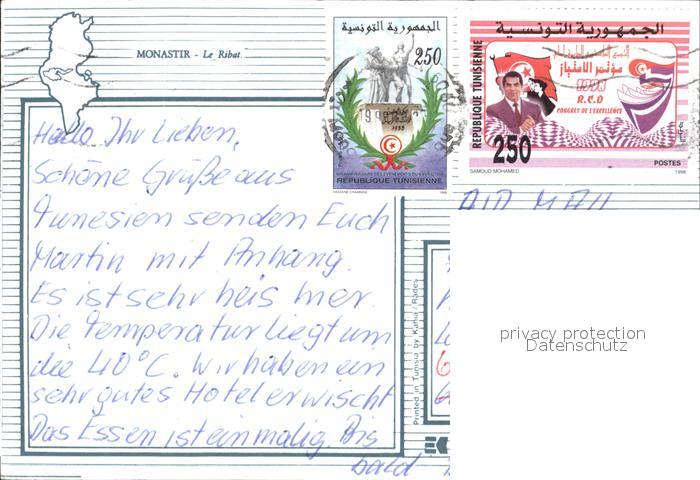 MONASTIR - Le Ribat.
الجمهورية التونسية
250
1938
REPUBLIQUE TUNISIENNE
1998
الجمهورية التونسية
REPUBLIQUE TUNISIENNE
مؤتمر الامتياز
1998
R.C.D
CONGRES DE L'EXCELLENCE
250
POSTES
SAMOUD MOHAMED
1998
AIR MAIL
Hallo Ihr Lieben,
Schöne Grüße aus
Tunesien senden Euch
Martin mit Anhang.
Es ist sehr heis hier.
Die Temperatur liegt um
die 40°C. Wir haben ein
sehr gutes Hotel erwischt
Das Essen ist einmalig. Bis
bald
Printed in Tunisia by Kahia / Rades
privacy protection
Datenschutz